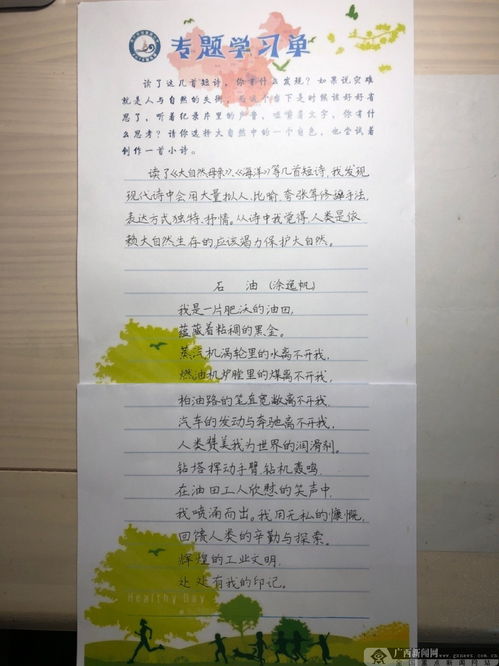 专题学习单
读了这几首短诗，你有什么发现？如果说灾难
就是人与自然的失衡，而这个当下是时候该好好省
思了，听着纪录片里的声音，咀嚼着文字，你有什
么思考？请你选择大自然中的一个角色，也尝试着
创作一首小诗。
读了《大自然母亲》、《海洋》等几首短诗，我发现
现代诗中会用大量拟人、比喻、夸张等修辞手法，
表达方式独特、抒情。从诗中我觉得人类是依
赖大自然生存的应该竭力保护大自然。
石 油（涂逸帆）
我是一片肥沃的油田，
蕴藏着粘稠的黑金。
蒸汽机涡轮里的水离不开我，
燃油机炉膛里的煤离不开我，
柏油路的笔直宽敞离不开我，
汽车的发动与奔驰离不开我，
人类赞美我为世界的润滑剂。
钻塔挥动手臂，钻机轰鸣，
在油田工人欣慰的笑声中，
我喷涌而出。我用无私的慷慨，
回馈人类的辛勤与探索。
辉煌的工业文明，
处处有我的印记。
Healthy Day
广西新闻网
www.gxnews.com.cn